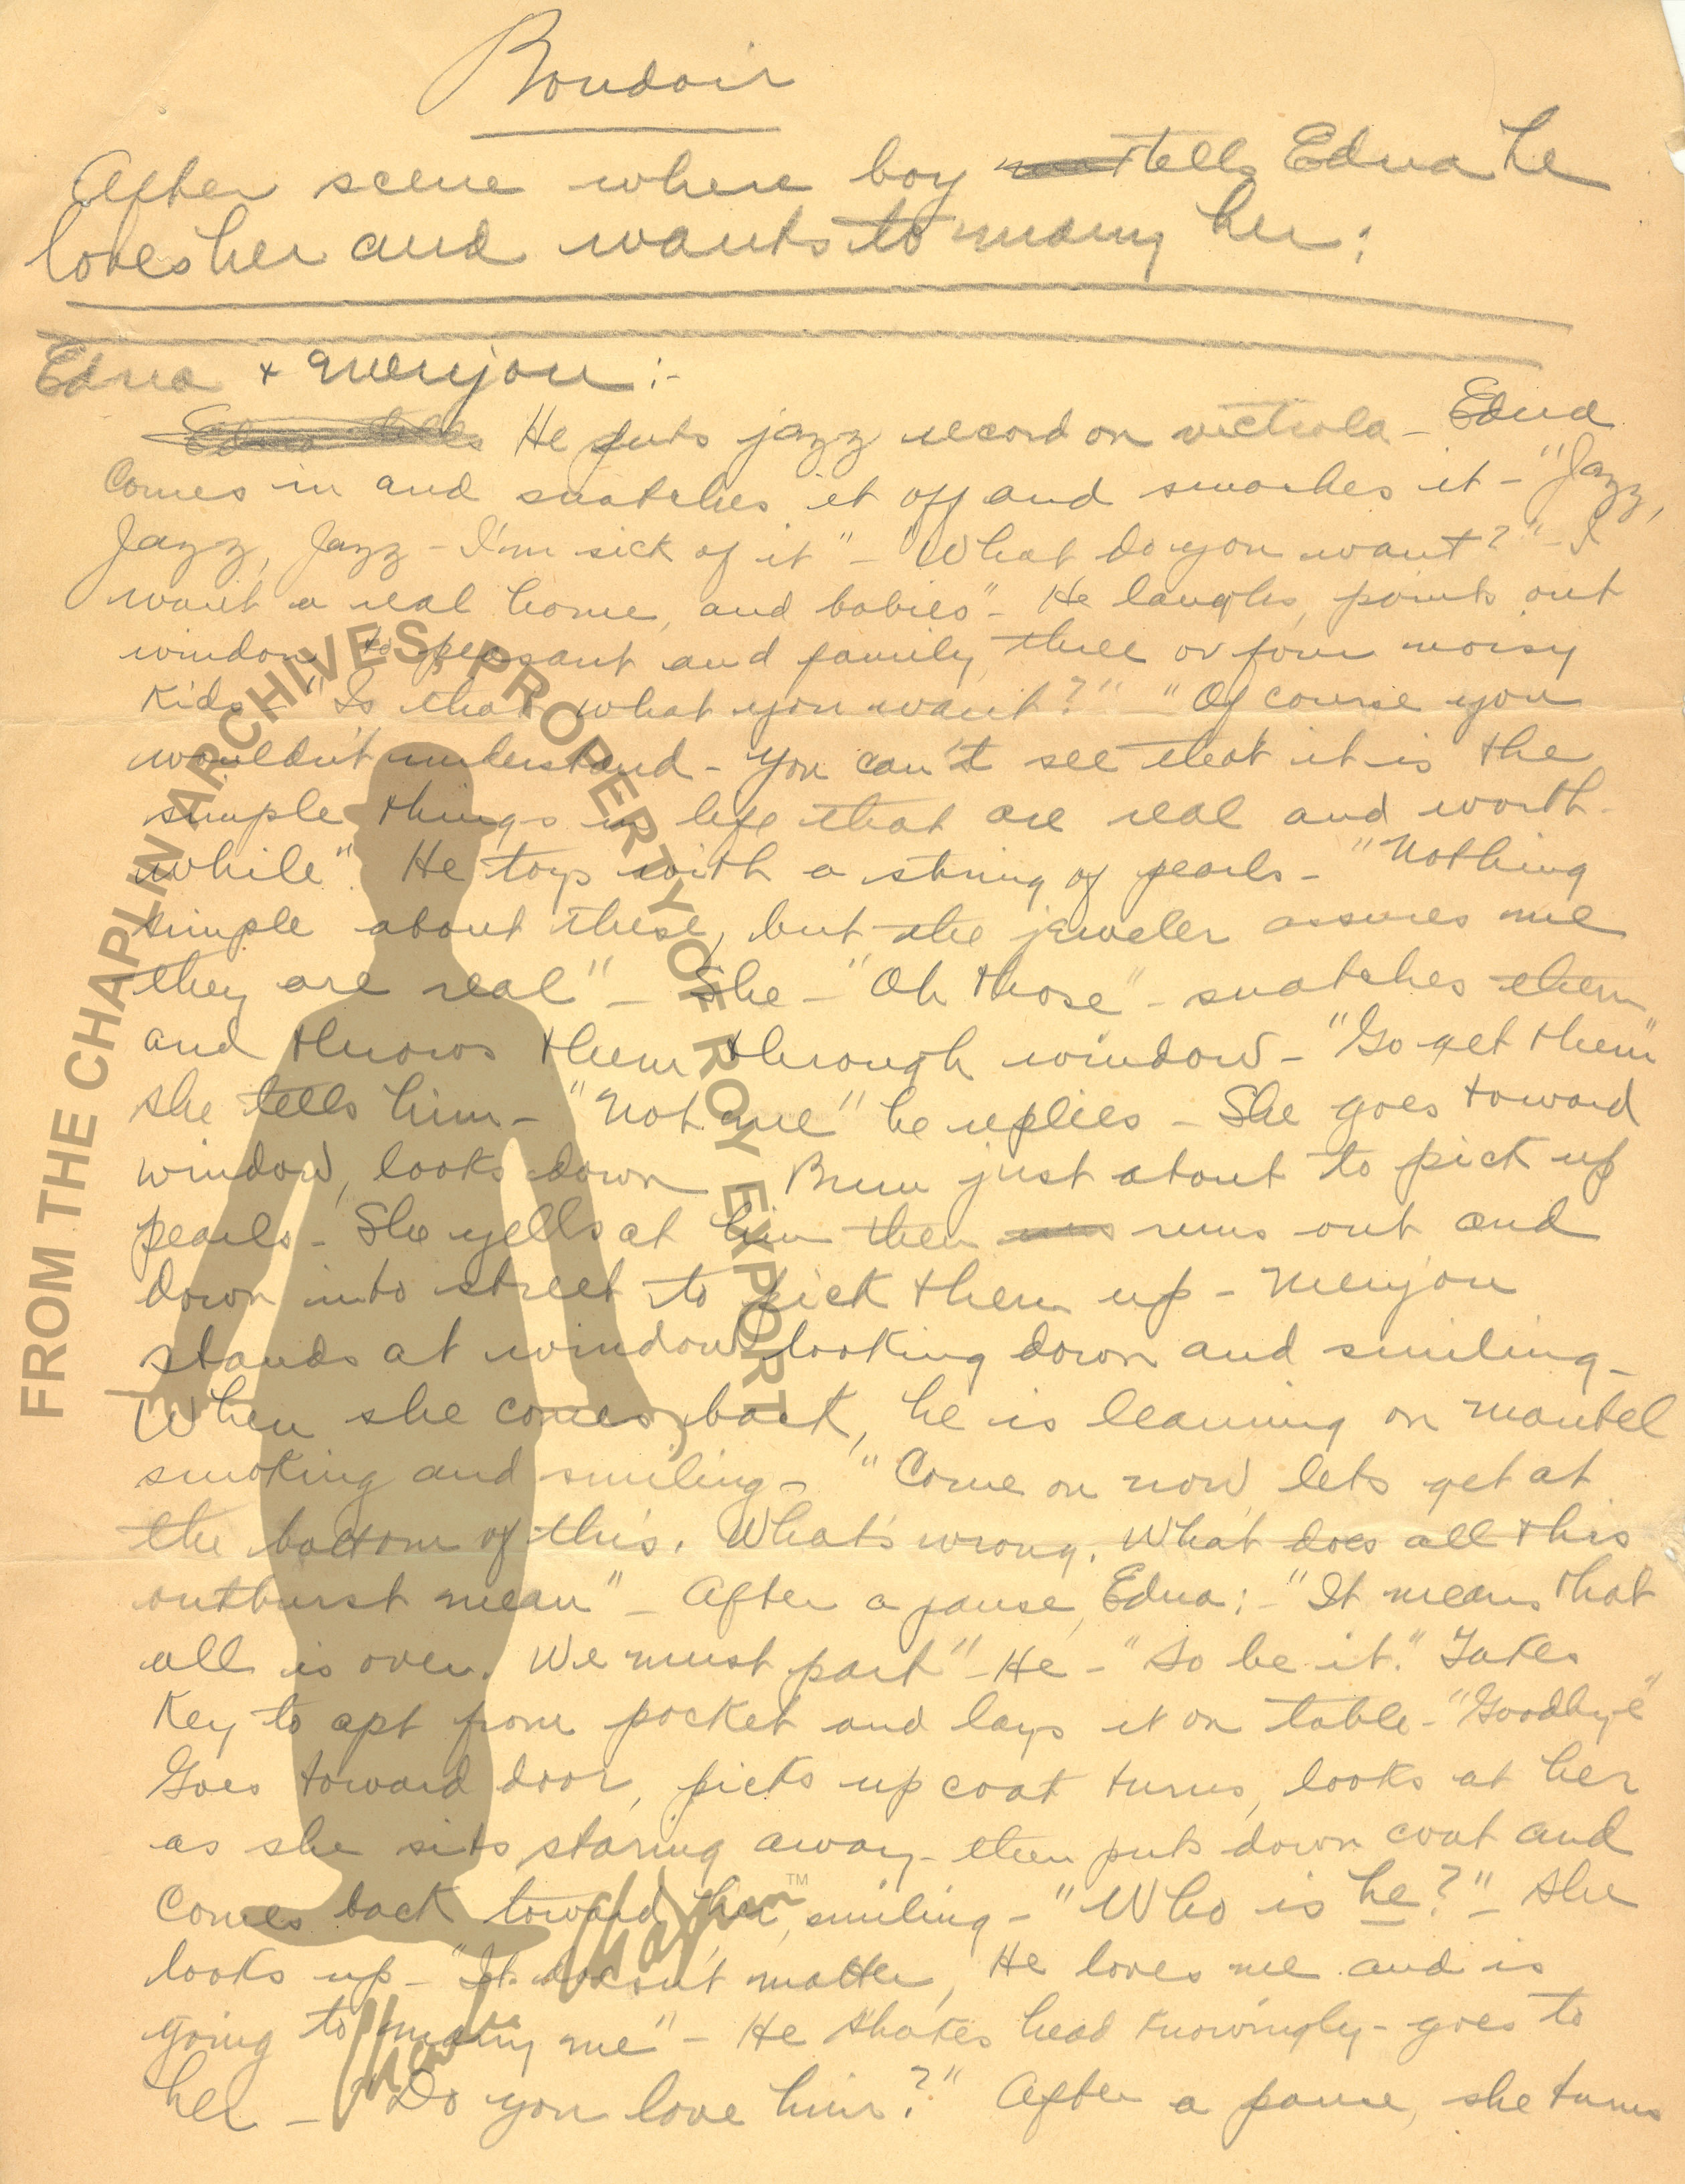 Boudoir
After scene where boy tells Edna he
loves her and wants to marry her:
Edna + Menjou:-
He puts jazz record on victrola - Edna
comes in and snatches it off and smashes it - "Jazz,
Jazz, Jazz - I'm sick of it" - "What do you want?" - I
want a real home, and babies" - He laughs, points out
window to peasant and family, three or four noisy
kids - "Is that what you want?" "Of course you
wouldn't understand - you can't see that it is the
simple things in life that are real and worth-
while". He toys with a string of pearls - "Nothing
simple about these, but the jeweler assures me
they are real" - She - "Oh those" - snatches them
and throws them through window - "Go get them"
she tells him - "Not me" he replies - She goes toward
window, looks down Bum just about to pick up
pearls - She yells at him then runs out and
down into street to pick them up - Menjou
stands at window looking down and smiling -
When she comes back, he is leaning on mantel
smoking and smiling - "Come on now lets get at
the bottom of this. What's wrong. What does all this
outburst mean" - After a pause, Edna: - "It means that
all is over. We must part" - He - "So be it." Takes
key to apt from pocket and lays it on table - "Goodbye"
Goes toward door, picks up coat turns, looks at her
as she sits staring away - then puts down coat and
comes back toward her, smiling - "Who is he?" - She
looks up - "It doesn't matter, He loves me and is
going to marry me" - He shakes head knowingly - goes to
her - "Do you love him?" After a pause, she turns
FROM THE CHAPLIN ARCHIVES, PROPERTY OF ROY EXPORT
Charlie Chaplin™